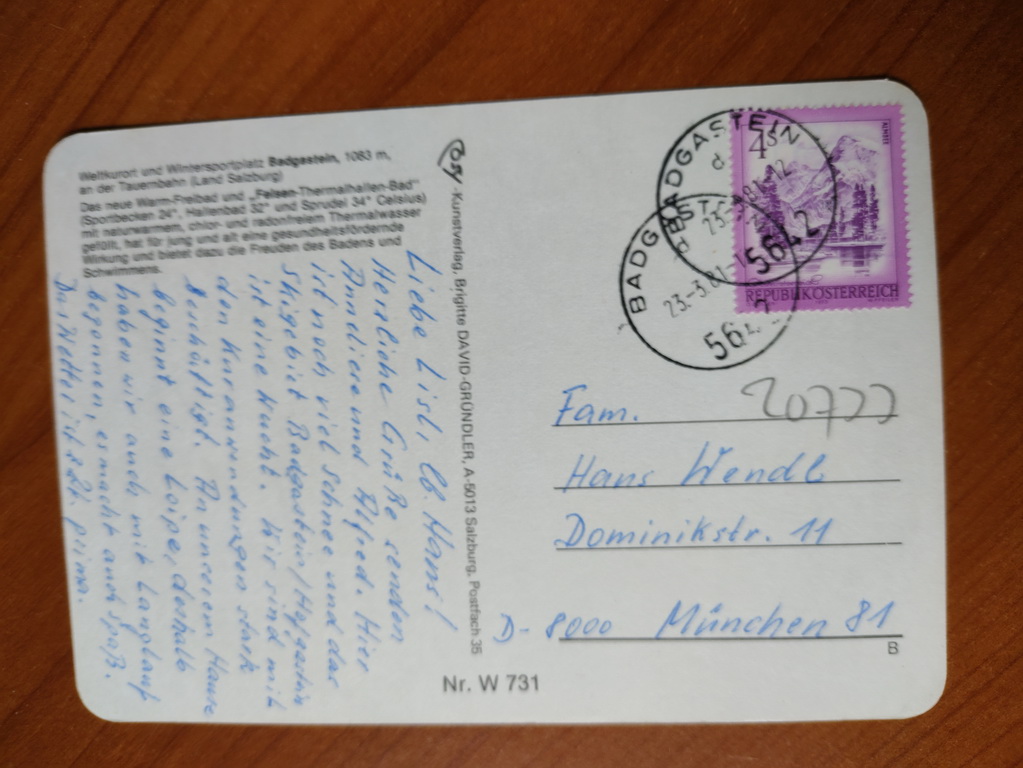 Weltkurort und Wintersportplatz Badgastein, 1083 m,
an der Tauernbahn (Land Salzburg)
Das neue Warm-Freibad und „Felsen-Thermalhallen-Bad"
(Sportbecken 24°, Hallenbad 32° und Sprudel 34° Celsius)
mit naturwarmem, chlor- und radonfreiem Thermalwasser
gefüllt, hat für jung und alt eine gesundheitsfördernde
Wirkung und bietet dazu die Freuden des Badens und
Schwimmens.
Liebe Lisl, lb. Hans!
Herzliche Grüße senden
Anneliese und Alfred. Hier
ist noch viel Schnee und das
Skigebiet Badgastein/Hofgastein
ist eine Wucht. Wir sind mit
den Kuranwendungen stark
beschäftigt. An unserem Hause
beginnt eine Loipe, deshalb
haben wir auch mit Langlauf
begonnen, es macht auch Spaß.
Das Wetter ist z. Zt. prima.
Cosy-Kunstverlag, Brigitte DAVID-GRÜNDLER, A-5013 Salzburg, Postfach 35
Nr. W 731
4 S
ALMSEE
REPUBLIK ÖSTERREICH
BADGASTEIN
5642
BADGASTEIN
23.-3.81
5642
20777
Fam.
Hans Wendl
Dominikstr. 11
D-8000 München 81
B